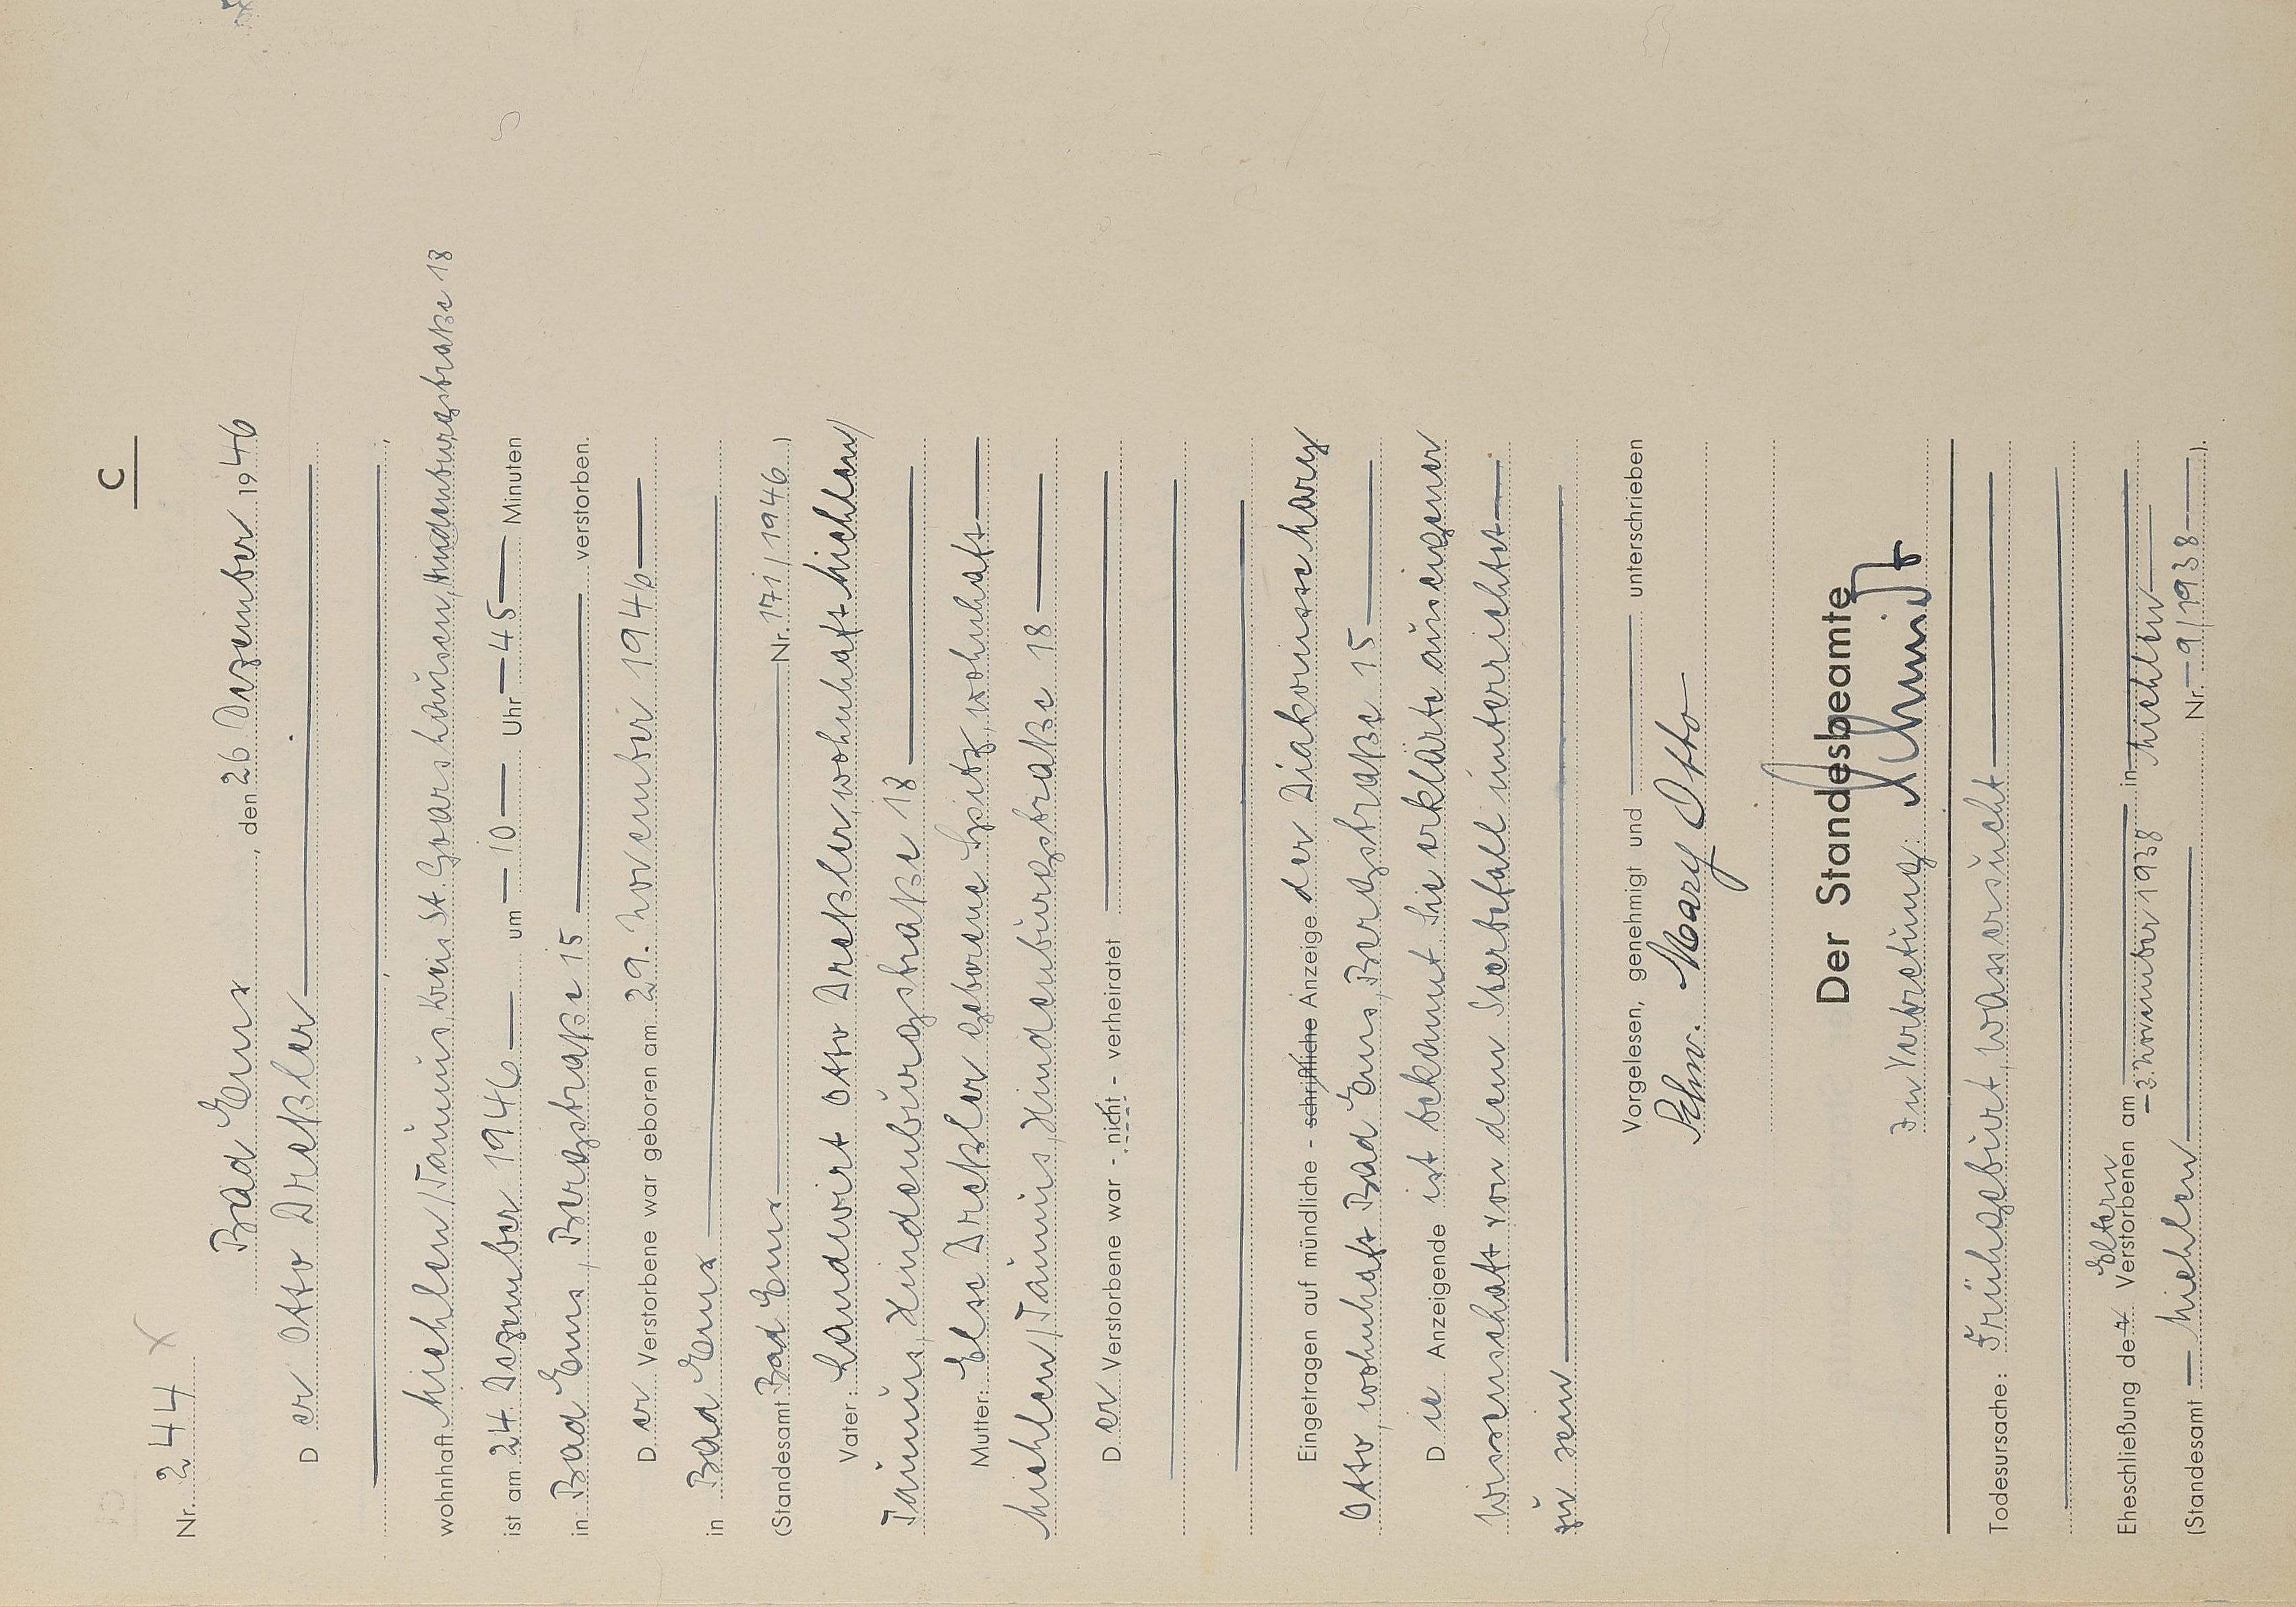 C
Nr. 244
Bad Ems, den 26 Dezember 1946
Der Otto Dreßler
wohnhaft Miehlen/Taunus, Kreis St. Goarshausen, Hindenburgstraße 18
ist am 24. Dezember 1946 um 10 Uhr 45 Minuten
in Bad Ems, Bergstraße 15 verstorben.
Der Verstorbene war geboren am 29. November 1946
in Bad Ems
(Standesamt Bad Ems Nr. 171/1946)
Vater: Landwirt Otto Dreßler, wohnhaft Miehlen/
Taunus, Hindenburgstraße 18
Mutter: Else Dreßler geborene Spitz, wohnhaft
Miehlen/Taunus, Hindenburgstraße 18
Der Verstorbene war - nicht - verheiratet
Eingetragen auf mündliche - schriftliche Anzeige der Diakonisse Mary
Otto, wohnhaft Bad Ems, Bergstraße 15
Die Anzeigende ist bekannt. Sie erklärte aus eigener
Wissenschaft von dem Sterbefall unterrichtet
zu sein
Vorgelesen, genehmigt und unterschrieben
Schw. Mary Otto
Der Standesbeamte
In Vertretung: Schmidt
Todesursache: Frühgeburt, Wassersucht
Eltern
Eheschließung der Verstorbenen am 3. November 1938 in Miehlen
(Standesamt Miehlen Nr. 9/1938).